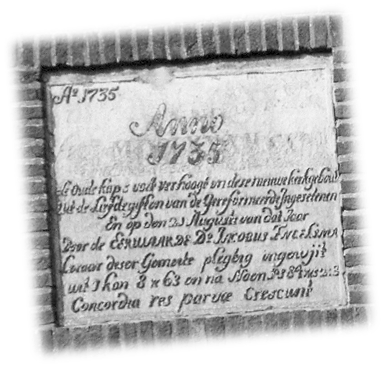 Aº 1735
Anno
1735
de Oude kap is vodt verhoogt en dese nieuwe kerk gebout
Uit de Liefde giften van de Gereformeerde Ingesetenen
En op den 21 Augustus van dat Jaar
Door de EERWAARDE Dº JACOBUS ENGELSMA
Leraar deser Gemeete plegtig ingewijt
uit 1 kon 8 v 63 en na Noon Ps 84 vs 2:3
Concordia res parvæ Crescunt